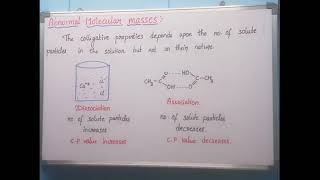 Abnormal Molecular masses:
The colligative properties depends upon the no. of solute
particles in the solution but not on their nature.
Ca++
Cl-
Cl-
Dissociation
no. of solute particles
increases
C.P value increases
O HO
CH3
CH3
OH O
Association
no. of solute particles
decreases.
C.P value decreases.